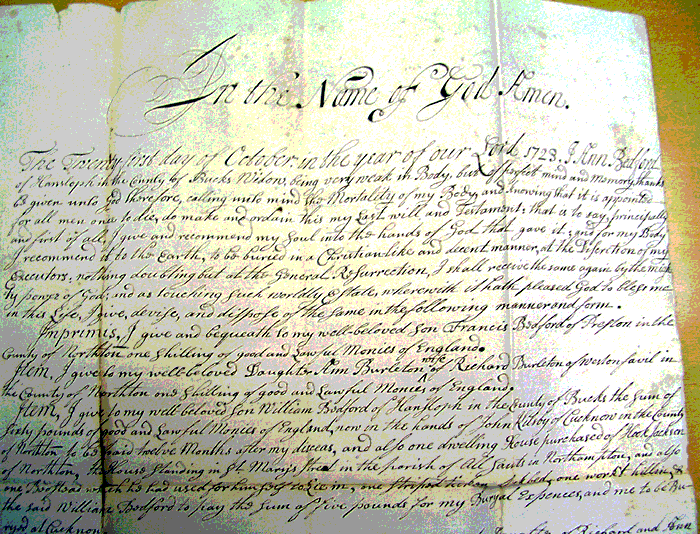 In the Name of God Amen.
The Twenty first day of October in the year of our Lord 1723. I Ann Bedford
of Hansloph in the County of Bucks Widow, being very weak in Body, but of perfect mind and memory, thanks
be given unto God therefore, calling unto mind the Mortality of my Body, and knowing that it is appointed
for all men once to die, do make and ordain this my Last will and Testament: that is to say, principally
and first of all, I give and recommend my Soul into the hands of God that gave it: and for my Body
I recommend it to the Earth, to be buried in a Christianlike and decent manner, at the Discretion of my
Executors. nothing doubting but at the General Resurrection, I shall receive the same again by the migh
ty power of God; and as touching such worldly Estate, wherewith it hath pleased God to bless me
in this Life, I give, devise, and dispose of the same in the following manner and form.
Imprimis, I give and bequeath to my well-beloved Son Francis Bedford of Preston in the
County of Northton one Shilling of good and Lawful Monies of England.
Item, I give to my well-beloved Daughter Ann Burleton wife of Richard Burleton of Weston favil in
the County of Northton one Shilling of good and Lawful Monies of England.
Item, I give to my well beloved Son William Bedford of Hansloph in the County of Bucks the Sum of
Sixty pounds of good and Lawful Monies of England, now in the hands of John of Cucknow in the County
of Northton to be paid twelve Months after my deceas, and also one dwelling House purchased of Jackson
of Northton, the House Standing in St Mary's Street in the parish of All Saints in Northampton, and also
one Bedstead which he had used for himself to Lie in, one one work't
the said William Bedford to pay the Sum of five pounds for my Buryal Expences, and me to be Bu-
ryed at Cucknow.
of Richard and Ann